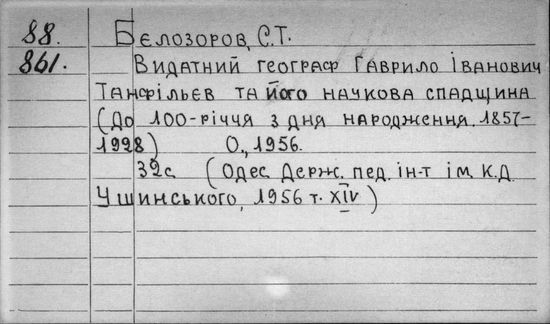 88. Бєлозоров, С.Т.
861. Видатний географ Гаврило Іванович
Танфільєв та його наукова спадщина
(До 100-річчя з дня народження. 1857-
1928) О., 1956.
32с. (Одес. Держ. пед. ін-т ім. К.Д.
Ушинського, 1956 т. XIV)